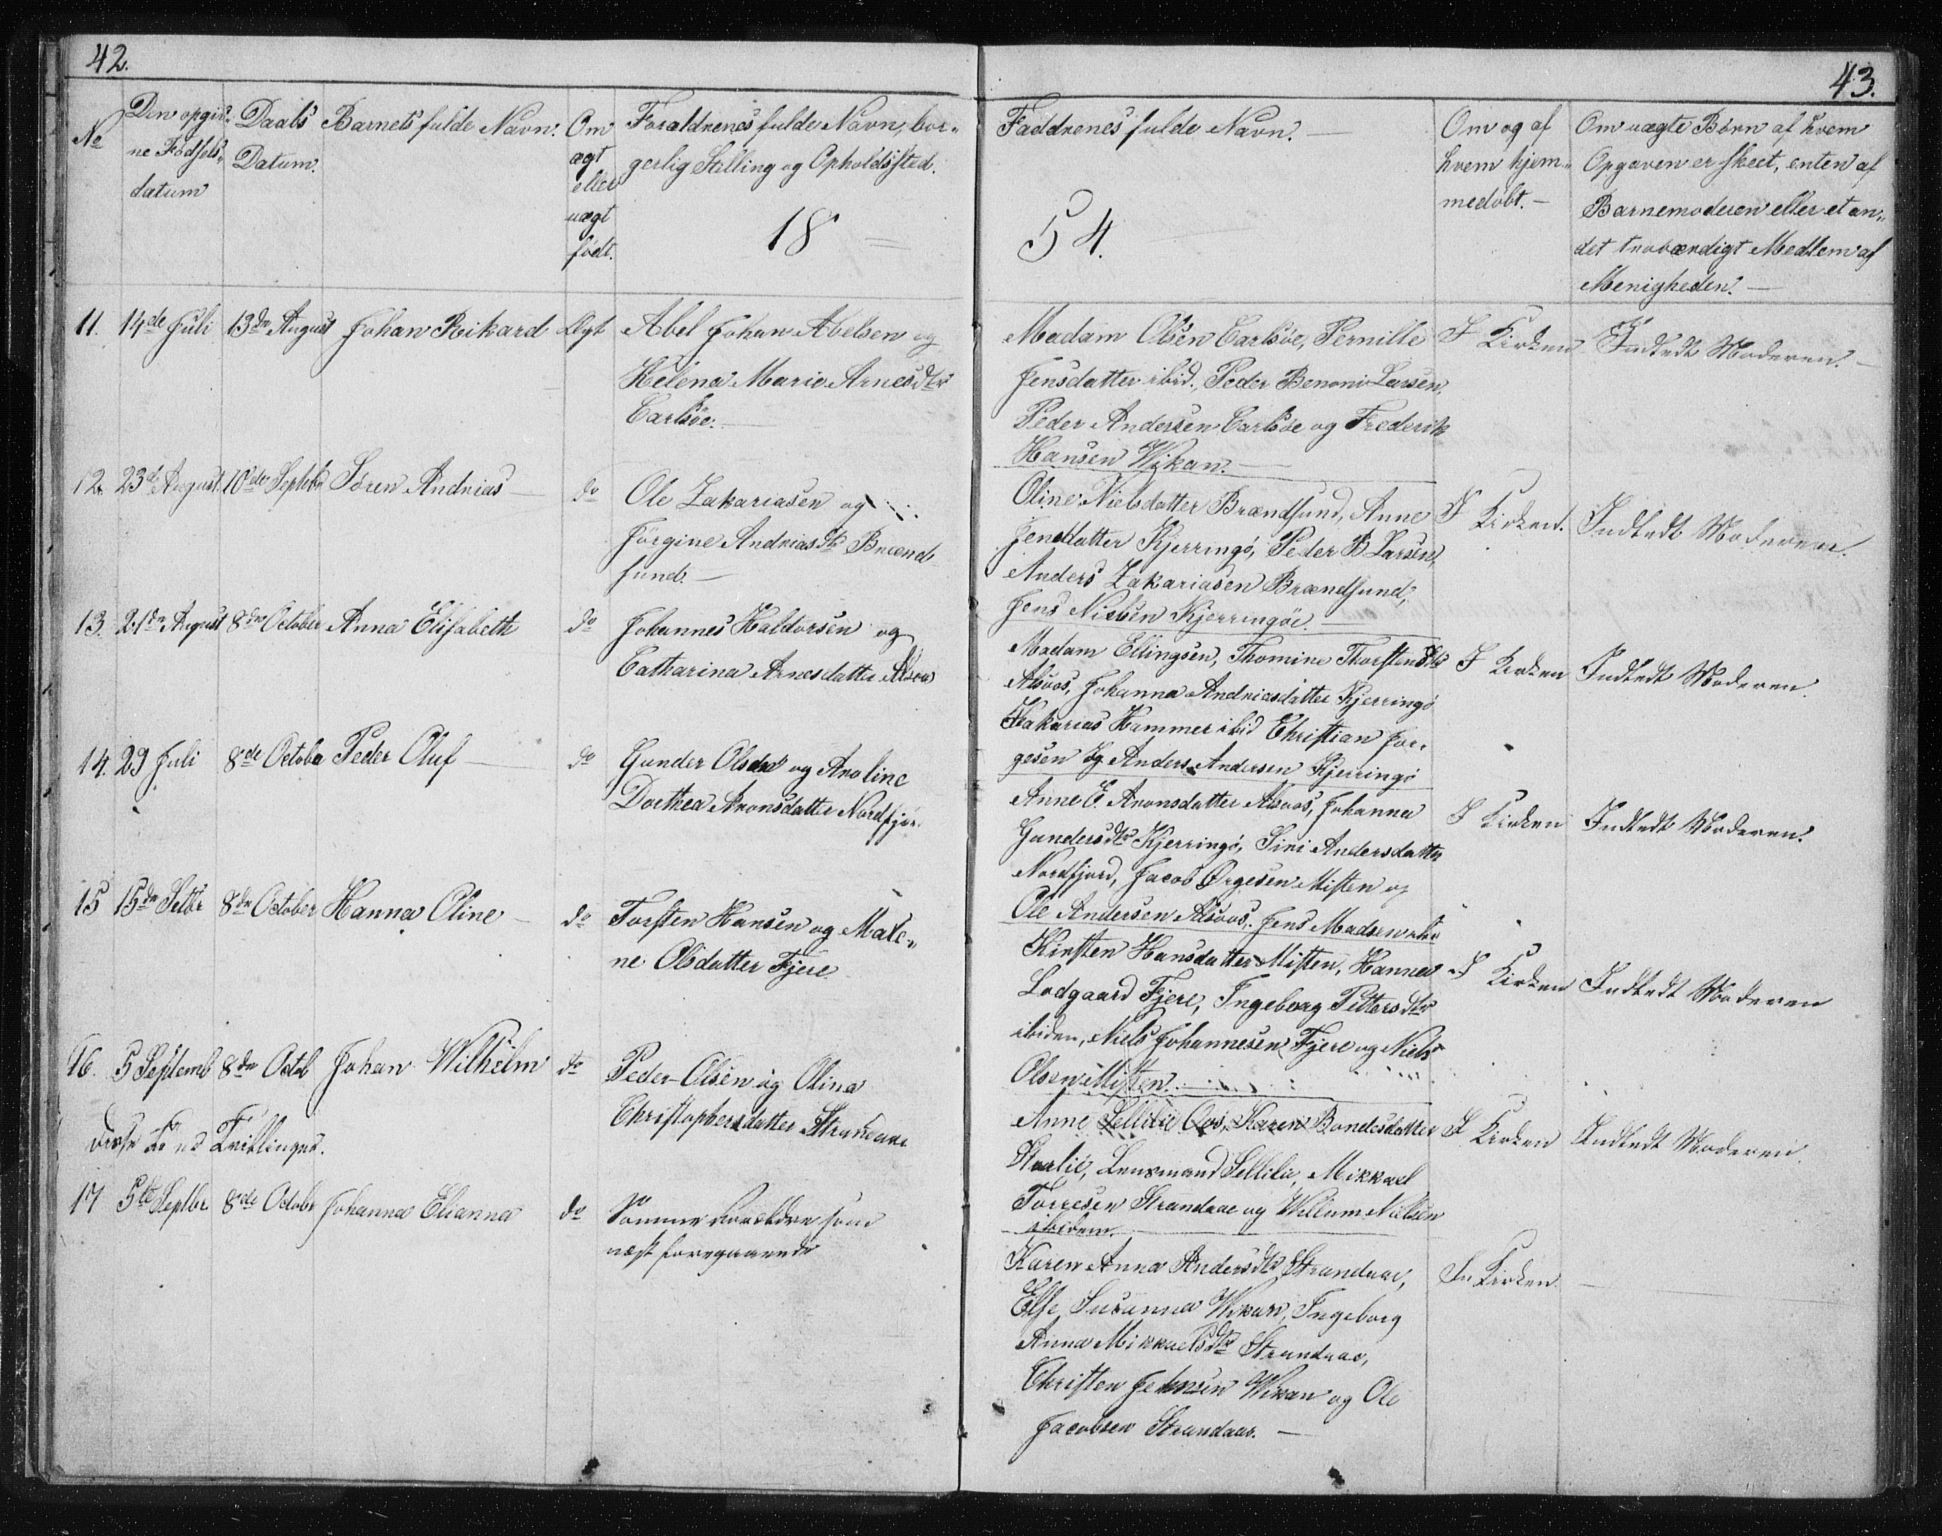 42.
43.
No
Den opgiv-
ne Fødsels-
datum
Daabs
Datum.
Barnets fulde Navn.
Om
ægt
eller
uægt
født.
Forældrenes fulde Navn, bor-
gerlig Stilling og Opholdssted.
18
Faddrenes fulde Navn. —
54.
Om og af
hvem hjem-
medøbt. —
Om uægte Børn af hvem
Opgaven er skeet, enten af
Barnemoderen eller et an-
det troværdigt Medlem af
Menigheden. —
11. 14de Juli 13de August Johan Rikard Ægt
Abel Johan Abelsen og
Helena Maria Arnesdtr
Carlsøe. —
Madam Olsen Carlsøe, Pernille
Jensdatter ibid. Peder Benoni Larsen,
Peder Andersen Carlsøe og Frederik
Hansen Wikan. —
I Kirken
Indledt Moderen. —
12. 23d August 10de Septebr Søren Andrias — do
Ole Zakariasen og
Jørgine Andriasdtr Brænd-
sund. —
Oline Nielsdatter Brændsund, Anne
Jensdatter Kjerringø, Peder B. Larsen,
Anders Zakariasen Brændsund,
Jens Nielsen Kjerringøe. —
I Kirken.
Indledt Moderen.
13. 21de August 8de October Anna Elisabeth do
Johannes Haldorsen og
Catharina Arnesdatter Alsvos
Madam Ellingsen, Thomine Thorstensdtr
Alsvos, Johanna Andriasdatter Kjerringø
Zakarias Hammer ibid Christian Jør-
gesen og Anders Andersen Kjerringø
I Kirken
Indledt Moderen.
14. 29 Juli 8de October Peder Oluf — do
Gunder Olsen og Anoline
Dorthea Aronsdatter Nordfjor.
Anne E. Aronsdatter Alsvos, Johanna
Gundersdtr Kjerringø, Siri Andersdatter
Nordfjord, Jacob Ørgesen Misten og
Ole Andersen Alsvos. Jens Madsen
I Kirken
Indledt Moderen.
15 15de Setbr 8de October Hanna Oline — do
Torsten Hansen og Male-
ne Olsdatter Fjere
Kirsten Hansdatter Misten, Hanna
Lodgaard Fjere, Ingeborg Pettersdtr
ibiden, Niels Johannesen Fjere og Niels
Olsen Misten.
I Kirken
Indledt Moderen
16. 5 Septemb 8de Octob Johan Wilhelm do
Peder Olsen og Olina
Christophersdatter Strandaae
Anne Sellilie Ous, Karen Bondesdatter
Storlie, Lensmand Sellilie, Mikkael
Torresen Strandaae og Willum Nielsen
ibidem.
I Kirken
Indledt Moderen.
disse to ere Tvillinger.
17 5te Septbr 8de Octobr Johanna Elianna do
Samme Forældre som
næst foregaaende
Karen Anna Andersdtr Strandaae,
Else Susanna Wikan, Ingeborg
Anna Mikkaelsdtr Strandaae,
Christen Jensen Wikan og Ole
Jacobsen Strandaae. —
In Kirken. —